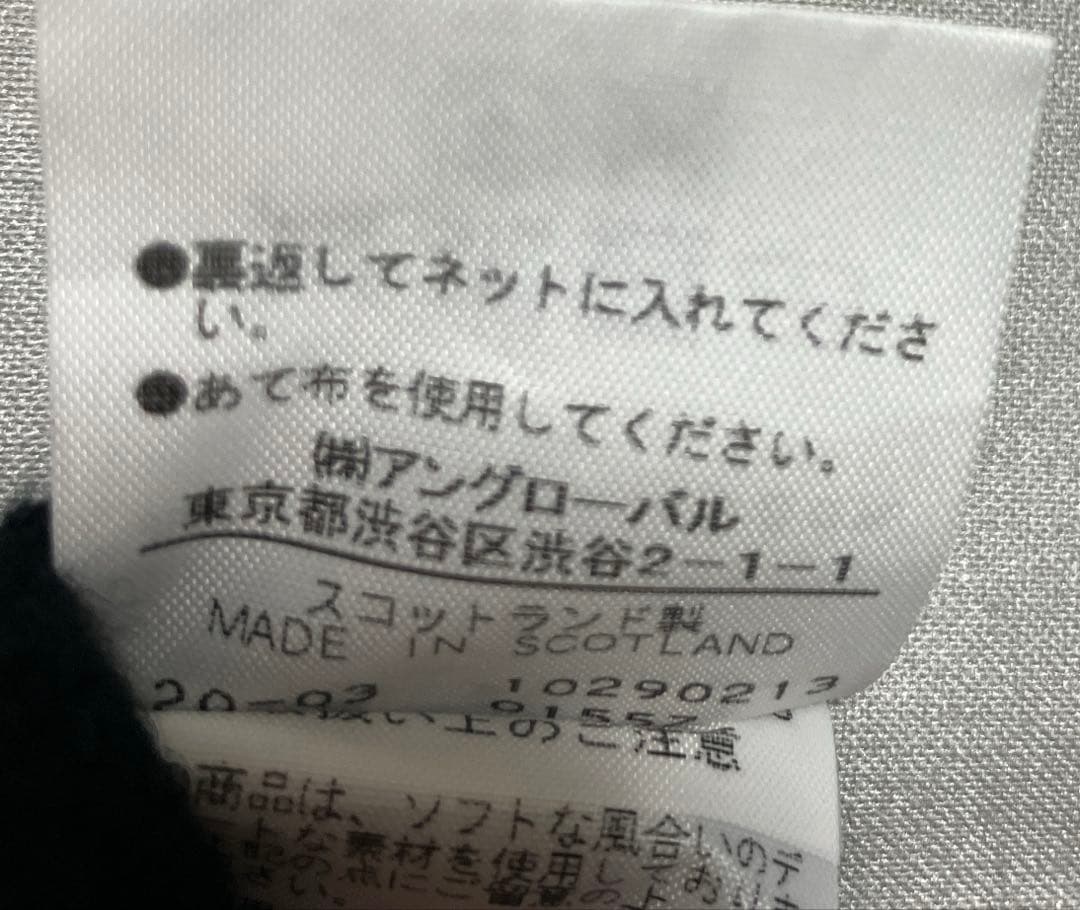 ●裏返してネットに入れてくださ
い。
●あて布を使用してください。
㈱アングローバル
東京都渋谷区渋谷2-1-1
スコットランド製
MADE IN SCOTLAND
20-03 10290213
扱い上のご注意
商品は、ソフトな風合いのデ
素材を使用し